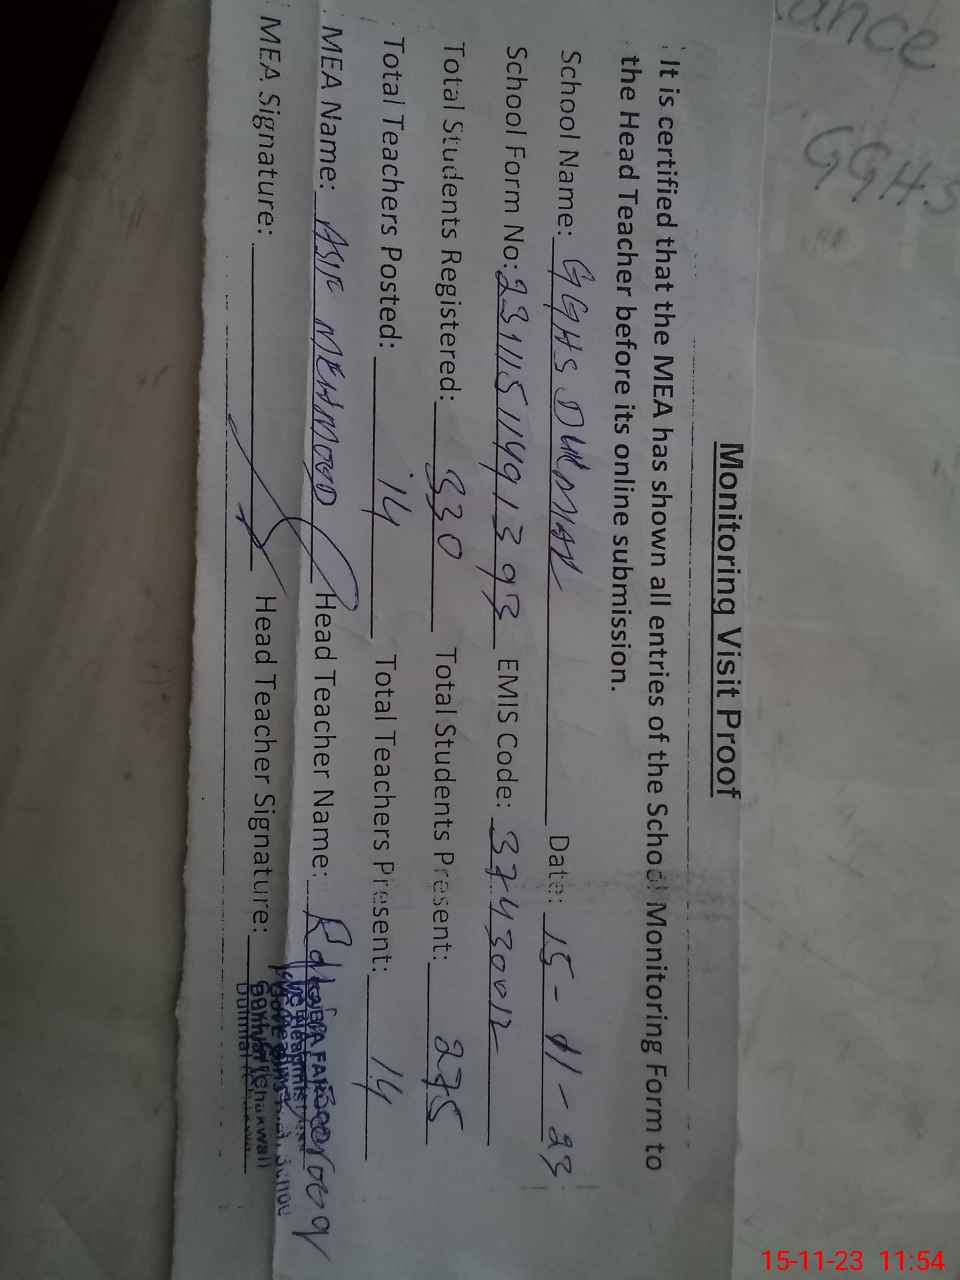 ance
GGHS
Monitoring Visit Proof
It is certified that the MEA has shown all entries of the School Monitoring Form to
the Head Teacher before its online submission.
School Name: GGHS DULMIAL Date: 15-11-23
School Form No: 23111511491393 EMIS Code: 37430012
Total Students Registered: 330 Total Students Present: 275
Total Teachers Posted: 14 Total Teachers Present: 14
MEA Name: ASIF MEHMOOD Head Teacher Name:
MEA Signature: Head Teacher Signature:
15-11-23 11:54